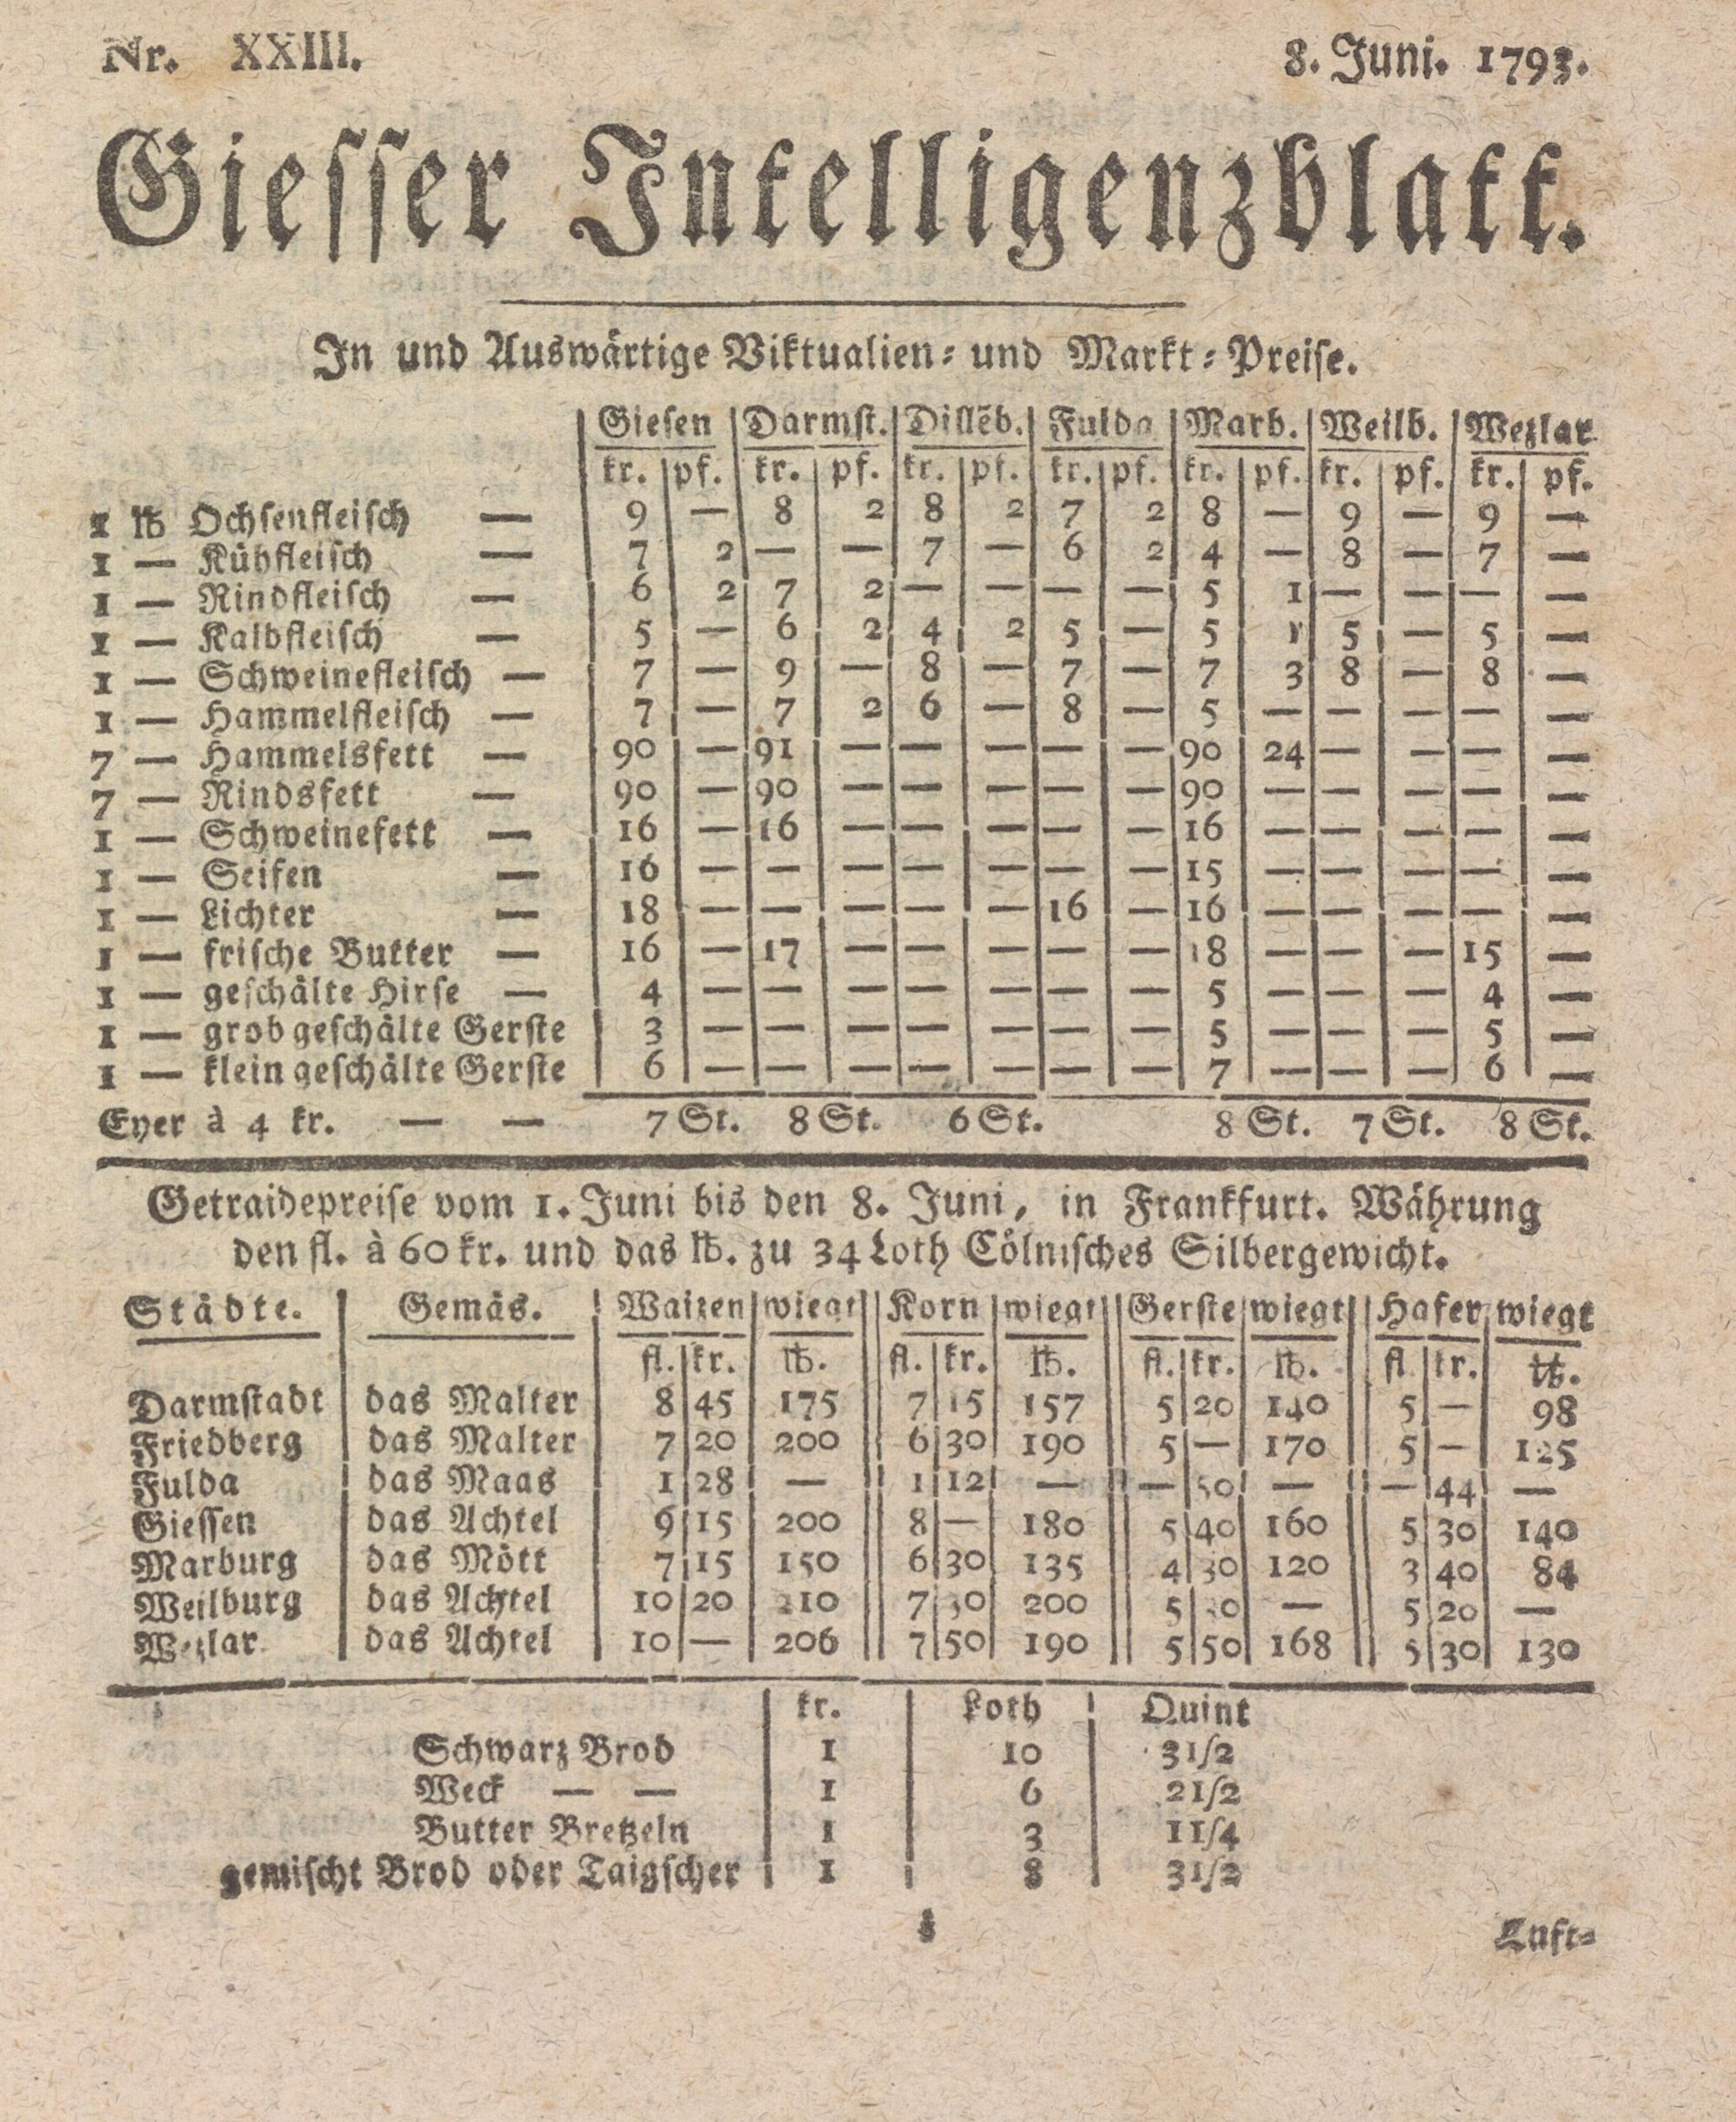 Nr. XXIII. 8. Juni. 1793.
Gieſſer Intelligenzblatt.
In und Auswärtige Viktualien- und Markt-Preiſe.
Gieſen Darmſt. Dillēb. Fulda Marb. Weilb. Wetzlar
kr. pf. kr. pf. kr. pf. kr. pf. kr. pf. kr. pf. kr. pf.
1 ℔ Ochſenfleiſch — 9 — 8 2 8 2 7 2 8 — 9 — 9 —
1 — Kühfleiſch — 7 2 — — 7 — 6 2 4 — 8 — 7 —
1 — Rindfleiſch — 6 2 7 2 — — — — 5 1 — — — —
1 — Kalbfleiſch — 5 — 6 2 4 2 5 — 5 1 5 — 5 —
1 — Schweinefleiſch — 7 — 9 — 8 — 7 — 7 3 8 — 8 —
1 — Hammelfleiſch — 7 — 7 2 6 — 8 — 5 — — — — —
7 — Hammelsfett — 90 — 91 — — — — — 90 24 — — — —
7 — Rindsfett — 90 — 90 — — — — — 90 — — — — —
1 — Schweinefett — 16 — 16 — — — — — 16 — — — — —
1 — Seifen — 16 — — — — — — — 15 — — — — —
1 — Lichter — 18 — — — — — 16 — 16 — — — — —
1 — friſche Butter — 16 — 17 — — — — — 18 — — — 15 —
1 — geſchälte Hirſe — 4 — — — — — — — 5 — — — 4 —
1 — grob geſchälte Gerſte 3 — — — — — — — 5 — — — 5 —
1 — klein geſchälte Gerſte 6 — — — — — — — 7 — — — 6 —
Eyer à 4 kr. — — 7 St. 8 St. 6 St. 8 St. 7 St. 8 St.
Getraidepreiſe vom 1. Juni bis den 8. Juni, in Frankfurt. Währung
den fl. à 60 kr. und das ℔. zu 34 Loth Cölniſches Silbergewicht.
Städte. Gemäs. Waizen wiegt Korn wiegt Gerſte wiegt Hafer wiegt
fl. kr. ℔. fl. kr. ℔. fl. kr. ℔. fl kr. ℔.
Darmſtadt das Malter 8 45 175 7 15 157 5 20 140 5 — 98
Friedberg das Malter 7 20 200 6 30 190 5 — 170 5 — 125
Fulda das Maas 1 28 — 1 12 — — 50 — — 44 —
Gieſſen das Achtel 9 15 200 8 — 180 5 40 160 5 30 140
Marburg das Mött 7 15 150 6 30 135 4 30 120 3 40 84
Weilburg das Achtel 10 20 210 7 30 200 5 — 5 20 —
Wetzlar das Achtel 10 — 206 7 50 190 5 50 168 5 30 130
kr. Loth Quint
Schwarz Brod 1 10 3 1/2
Weck — — 1 6 2 1/2
Butter Bretzeln 1 3 1 1/4
gemiſcht Brod oder Taigſcher 1 8 3 1/2
Luft-